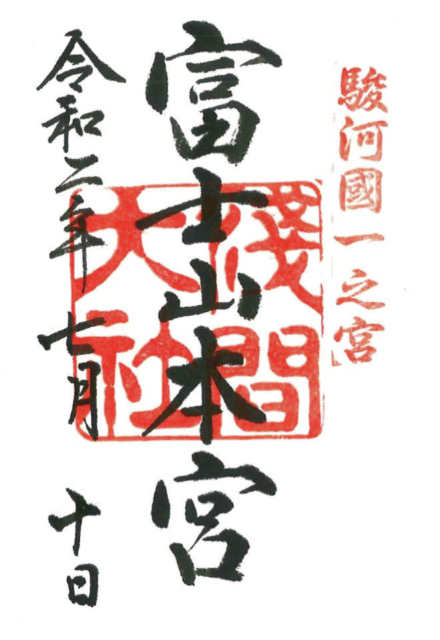 駿河國一之宮
富士山本宮
淺間
大社
令和二年七月十日